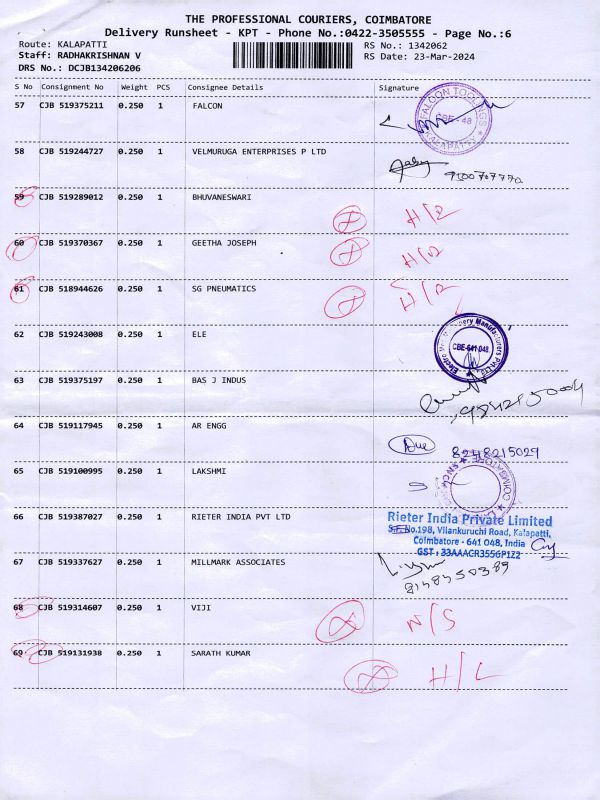 THE PROFESSIONAL COURIERS, COIMBATORE
Delivery Runsheet - KPT - Phone No.:0422-3505555 - Page No.:6
Route: KALAPATTI RS No.: 1342062
Staff: RADHAKRISHNAN V RS Date: 23-Mar-2024
DRS No.: DCJB134206206
S No Consignment No Weight PCS Consignee Details Signature
57 CJB 519375211 0.250 1 FALCON
FALCON TOOLINGS
CBE - 48
KALAPATTI
58 CJB 519244727 0.250 1 VELMURUGA ENTERPRISES P LTD
59 CJB 519289012 0.250 1 BHUVANESWARI
60 CJB 519370367 0.250 1 GEETHA JOSEPH
61 CJB 518944626 0.250 1 SG PNEUMATICS
62 CJB 519243008 0.250 1 ELE
CBE-641 048.
63 CJB 519375197 0.250 1 BAS J INDUS
64 CJB 519117945 0.250 1 AR ENGG
8248215029
65 CJB 519100995 0.250 1 LAKSHMI
COIMBATORE
66 CJB 519387027 0.250 1 RIETER INDIA PVT LTD
Rieter India Private Limited
S.F. No.198, Vilankuruchi Road, Kalapatti,
Coimbatore - 641 048, India
GST : 33AAACR3556P1Z2
67 CJB 519337627 0.250 1 MILLMARK ASSOCIATES
68 CJB 519314607 0.250 1 VIJI
N/S
69 CJB 519131938 0.250 1 SARATH KUMAR
H/L